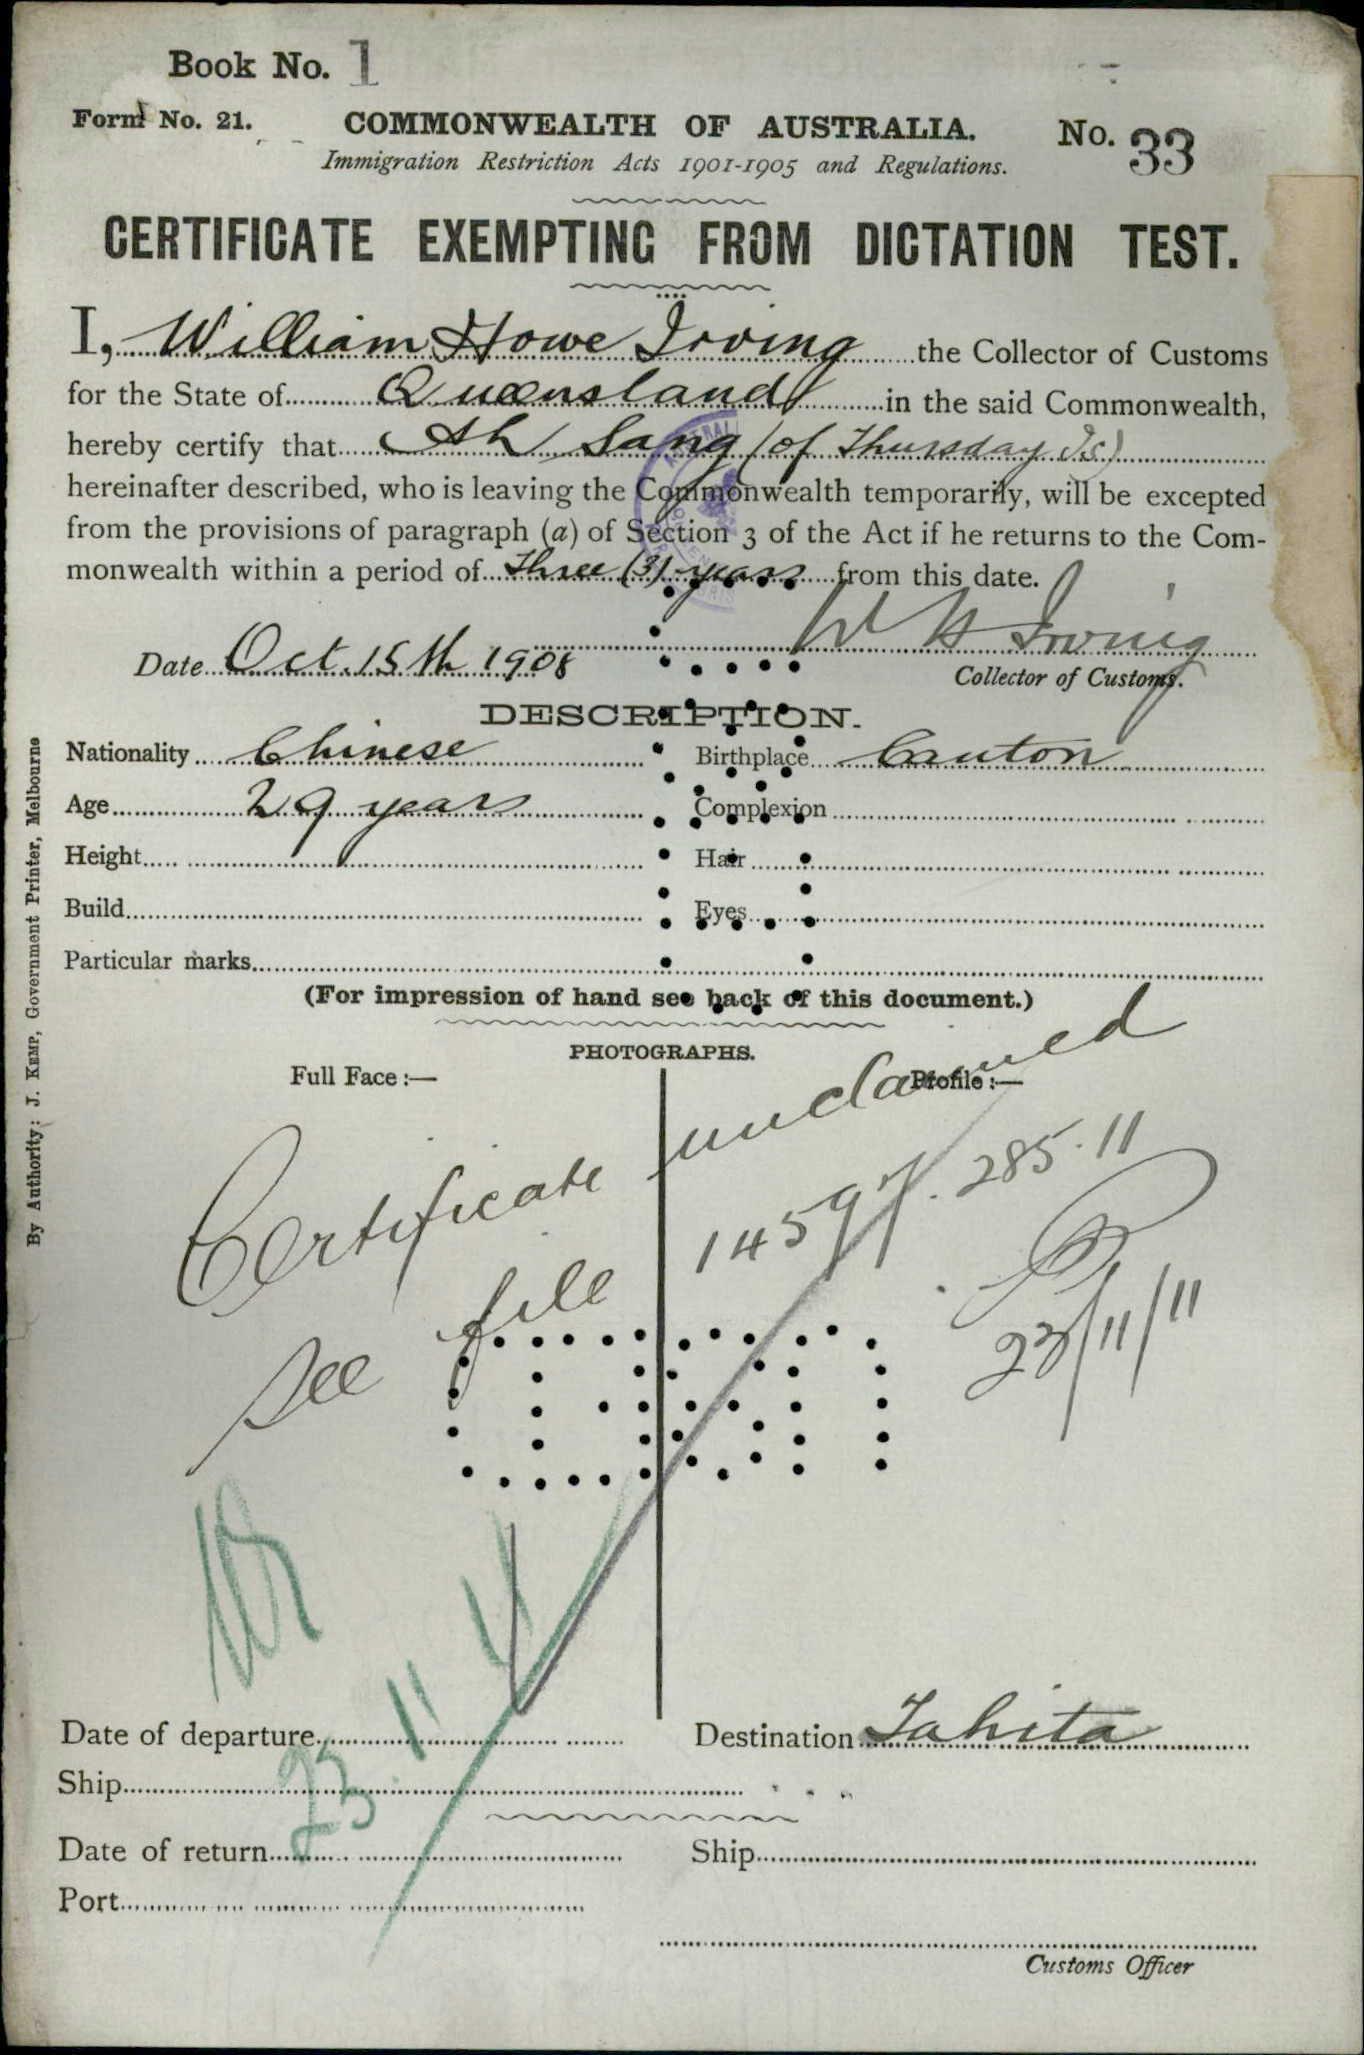 Book No. 1
Form No. 21.
COMMONWEALTH OF AUSTRALIA.
No. 33
Immigration Restriction Acts 1901-1905 and Regulations.
CERTIFICATE EXEMPTING FROM DICTATION TEST.
I, William Howe Irving the Collector of Customs
for the State of Queensland in the said Commonwealth,
hereby certify that Ah Sang (of Thursday Is)
hereinafter described, who is leaving the Commonwealth temporarily, will be excepted
from the provisions of paragraph (a) of Section 3 of the Act if he returns to the Com-
monwealth within a period of Three (3) years from this date.
W H Irving
Date Oct. 15th 1908
Collector of Customs.
DESCRIPTION.
Nationality Chinese Birthplace Canton
Age 29 years Complexion
Height Hair
Build Eyes
Particular marks
(For impression of hand see back of this document.)
PHOTOGRAPHS.
Full Face :— Profile :—
Certificate unclaimed
see file 14597. 285.11
23/11/11
23.11.11
Date of departure Destination Tahita
Ship
Date of return Ship
Port
Customs Officer
By Authority: J. KEMP, Government Printer, Melbourne